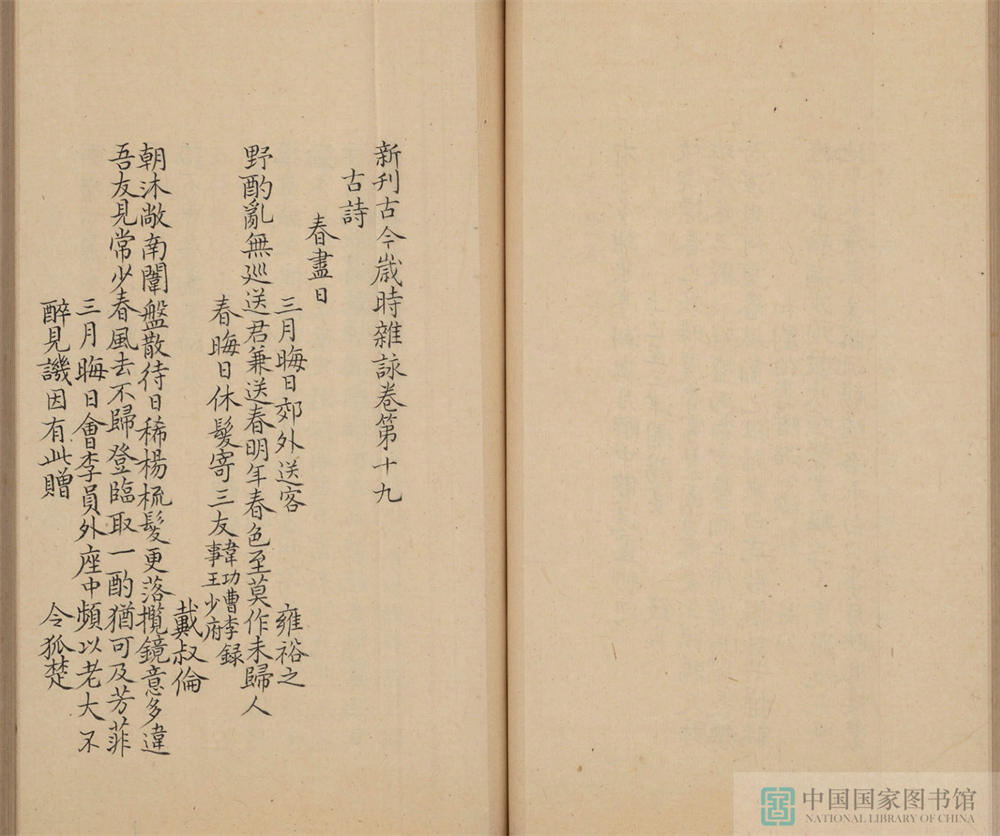 新刊古今嵗時雜詠卷第十九
古詩
春盡日
三月晦日郊外送客 雍裕之
野酌亂無廵送君兼送春明年春色至莫作未歸人
春晦日休髮寄三友韋功曹李録事王少府 戴叔倫
朝沐敞南闈盤散待日稀楊梳髮更落攬鏡意多違
吾友見常少春風去不歸登臨取一酌猶可及芳菲
三月晦日會李員外座中頻以老大不
醉見譏因有此贈 令狐楚
中国国家图书馆
NATIONAL LIBRARY OF CHINA